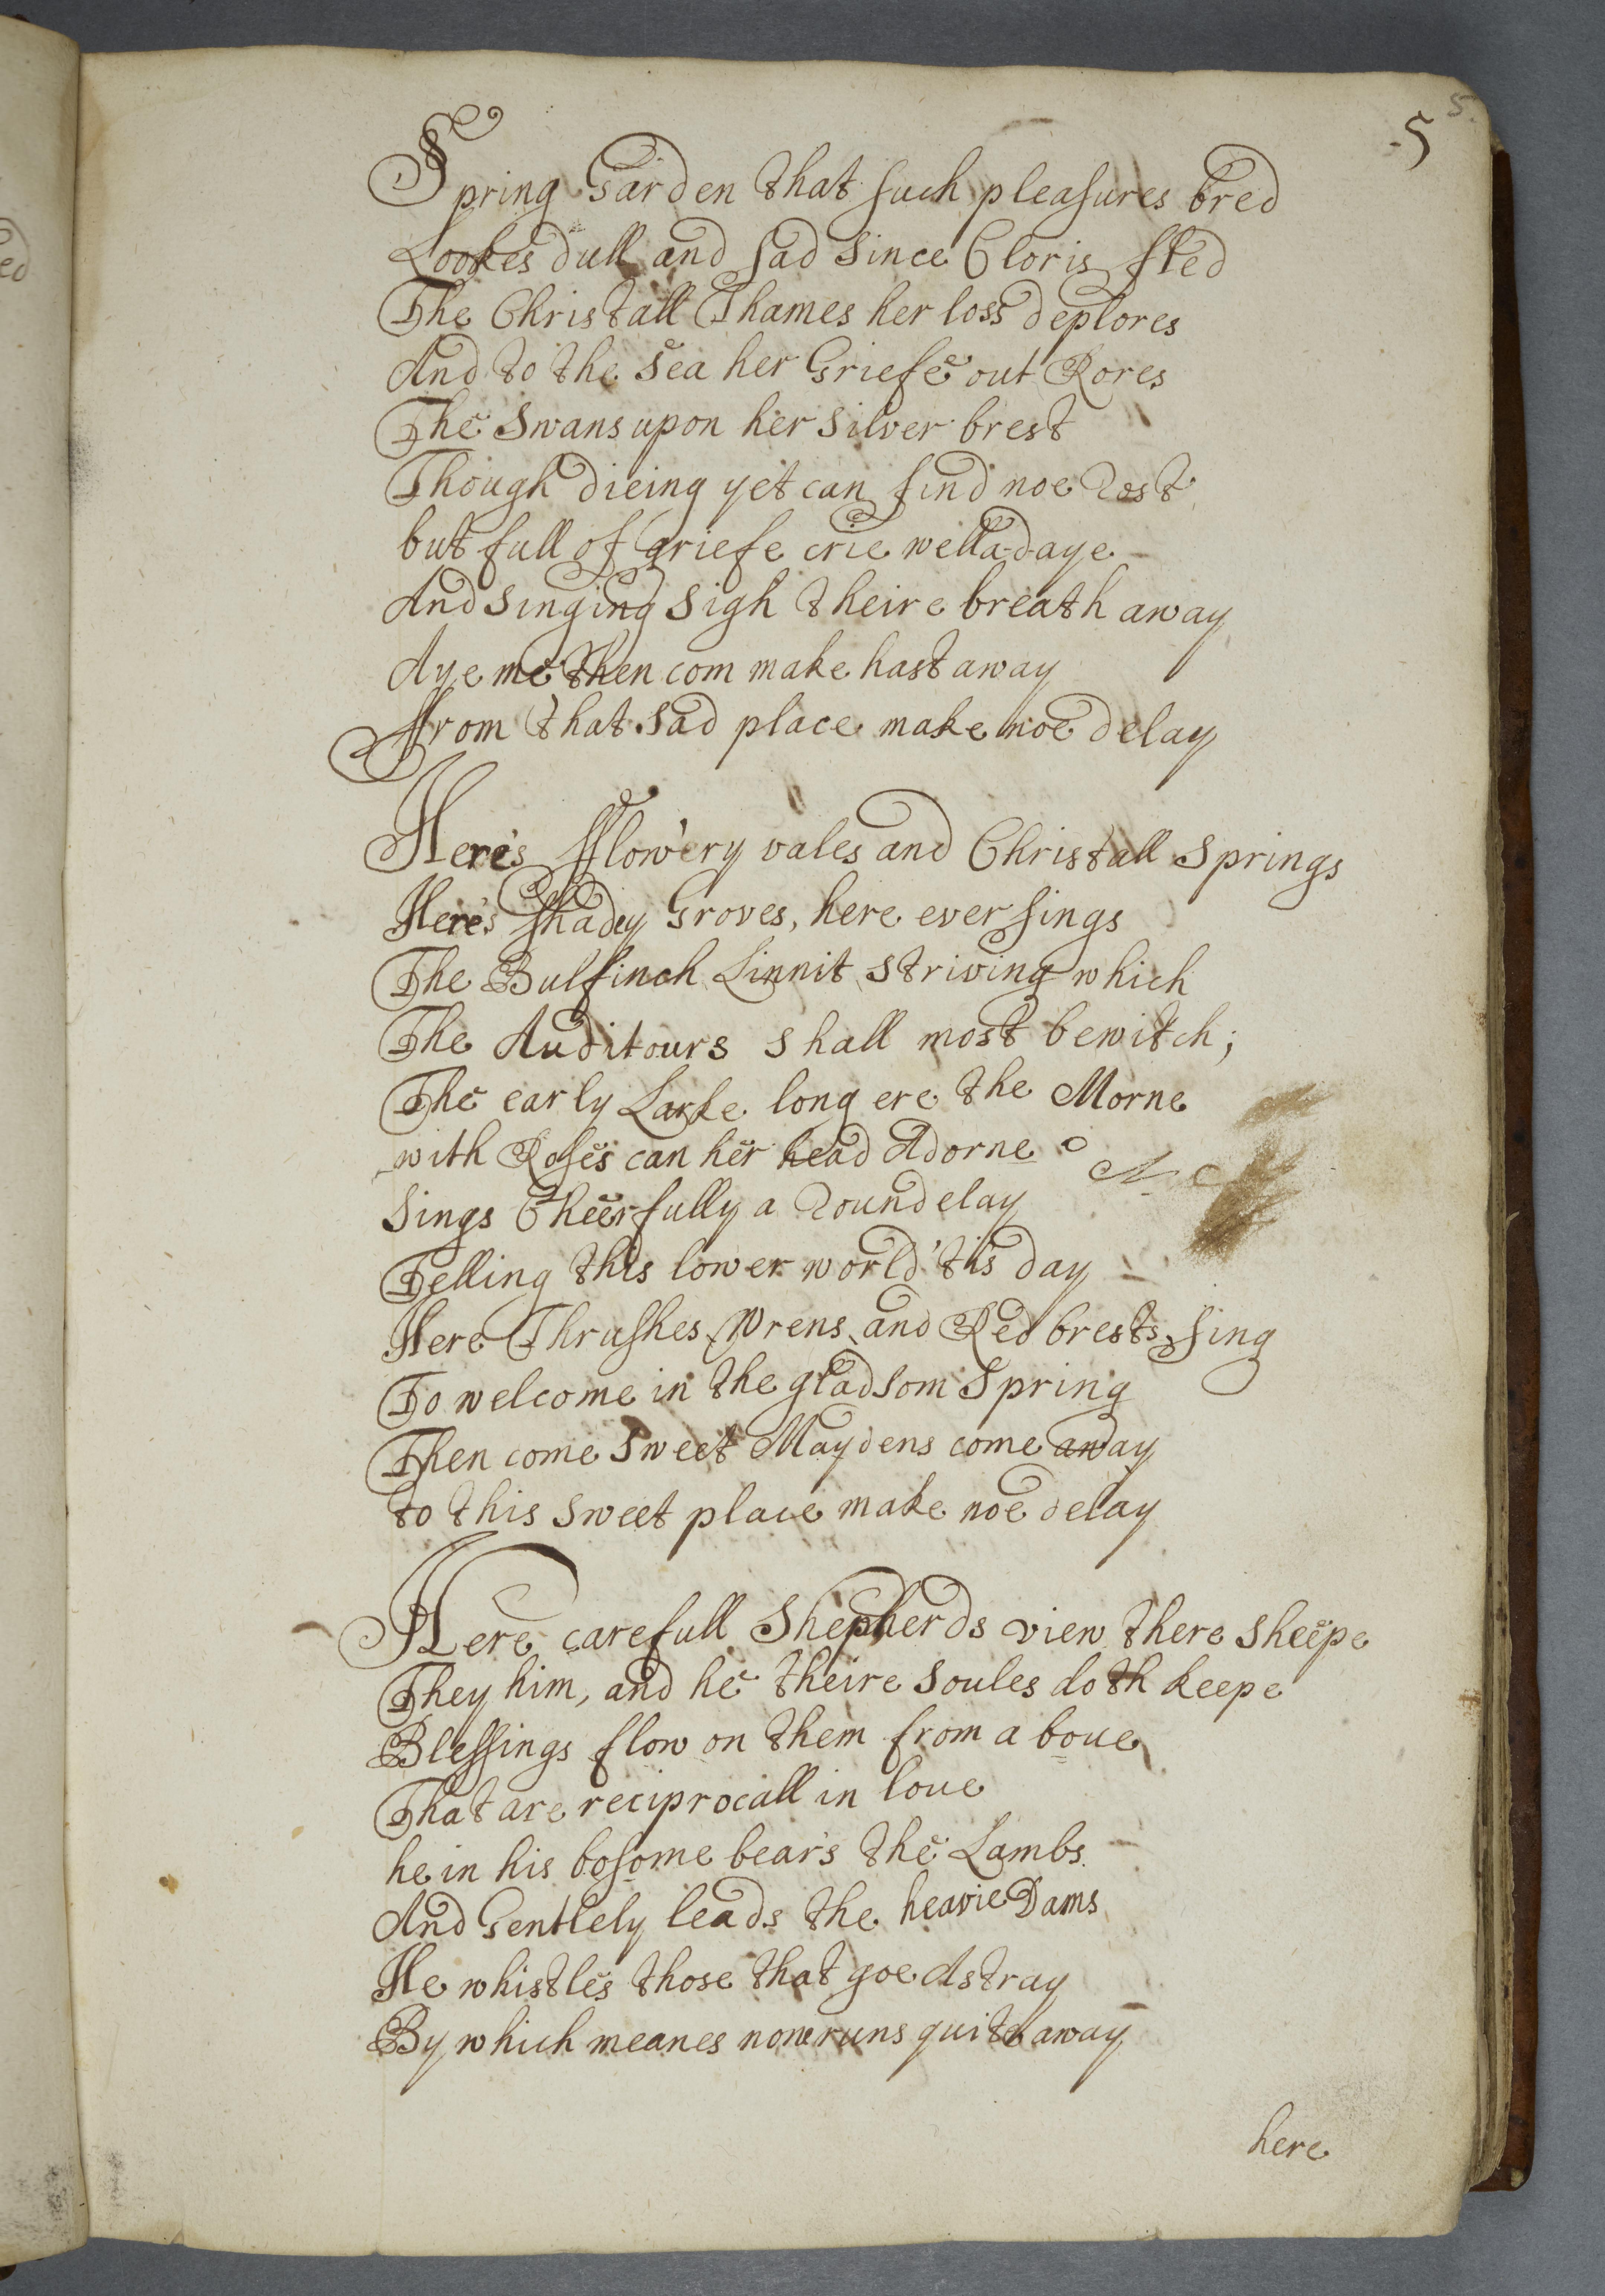 5
5
Spring Garden that such pleasures bred
Lookes dull and sad since Cloris fled
The Christall Thames her loss deplores
And to the Sea her Griefe out Rores
The Swans upon her silver brest
Though dieing yet can find noe rest
but full of griefe crie wella-daye
And singing sigh theire breath away
Aye me then com make hast away
ffrom that sad place make noe delay
Here's fflow'ery vales and Christall Springs
Here's shadey Groves, here ever sings
The Bulfinch Linnit striving which
The Auditours shall most bewitch;
The early Larke long ere the Morne
with Roses can her head Adorne
Sings Cheerfully a roundelay
Telling this lower world 'tis day
Here Thrushes, Wrens, and Red brests sing
To welcome in the gladsom Spring
Then come sweet Maydens come away
to this sweet place make noe delay
Here carefull Shepherds view there sheepe
They him, and he theire soules doth keepe
Blessings flow on them from a boue
That are reciprocall in loue
he in his bosome bears the Lambs
And Gentlely leads the heavie Dams
He whistles those that goe Astray
By which meanes none runs quite away
here